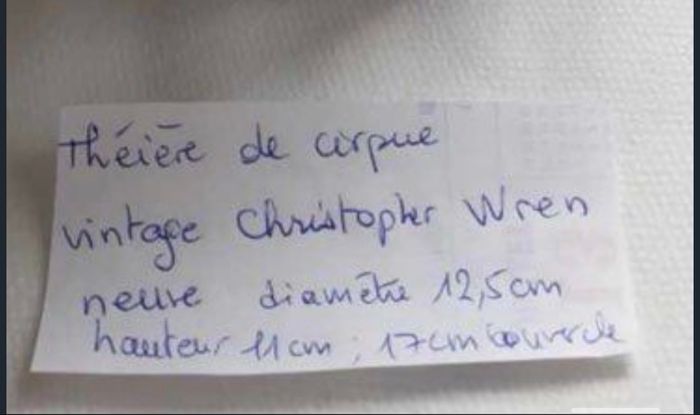 Théière de cirque
vintage Christopher Wren
neuve diamètre 12,5cm
hauteur 11cm ; 17cm couvercle